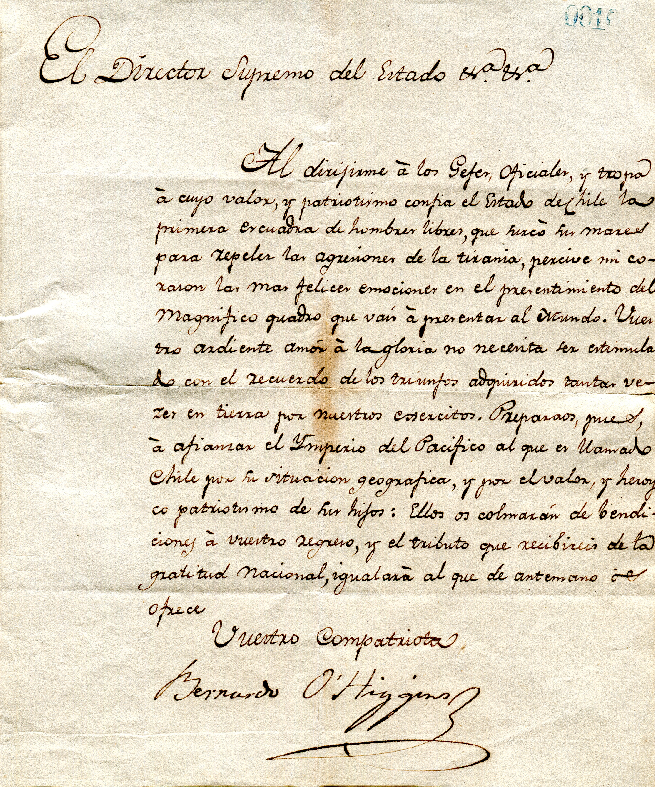 001
El Director Supremo del Estado &.ª &.ª
Al dirijirme à los Gefes, Oficiales, y tropa
à cuyo valor, y patriotismo confia el Estado de Chile la
primera escuadra de hombres libres, que surcò sus mares
para repeler las agresiones de la tirania, percive mi co-
razon las mas felices emociones en el presentimiento del
Magnifico quadro que vais à presentar al Mundo. Vues
tro ardiente amòr à la gloria no necesita ser estimula
do con el recuerdo de los triunfos adquiridos tantas ve-
zes en tierra por nuestros exercitos. Preparaos, pues,
à afianzar el Ymperio del Pacifico al que es llamado
Chile por su situacion geografica, y por el valor, y heroy
co patriotismo de sus hijos: Ellos os colmaràn de bendi-
ciones à vuestro regreso, y el tributo que recibireis de la
gratitud Nacional, igualarà al que de antemano os
ofrece
Vuestro Compatriota.
Bernardo O'Higgins